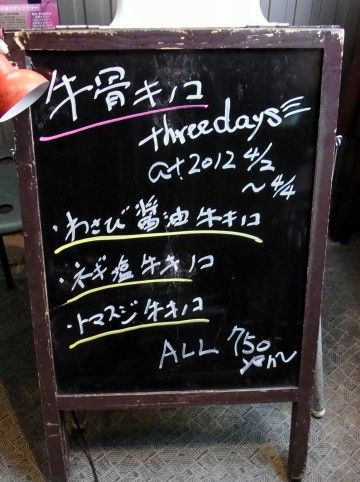 牛骨キノコ
threedays
at 2012 4/2
～4/4
・わさび醤油牛キノコ
・ネギ塩牛キノコ
・トマスジ牛キノコ
ALL 750
yen～